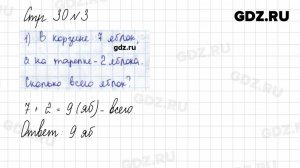 GDZ.RU
Стр 30 №3
1) В корзине 7 яблок,
gdz.ru
а на тарелке - 2 яблока.
Сколько всего яблок?
7 + 2 = 9 (яб) - всего
Ответ: 9 яб
GDZ.RU